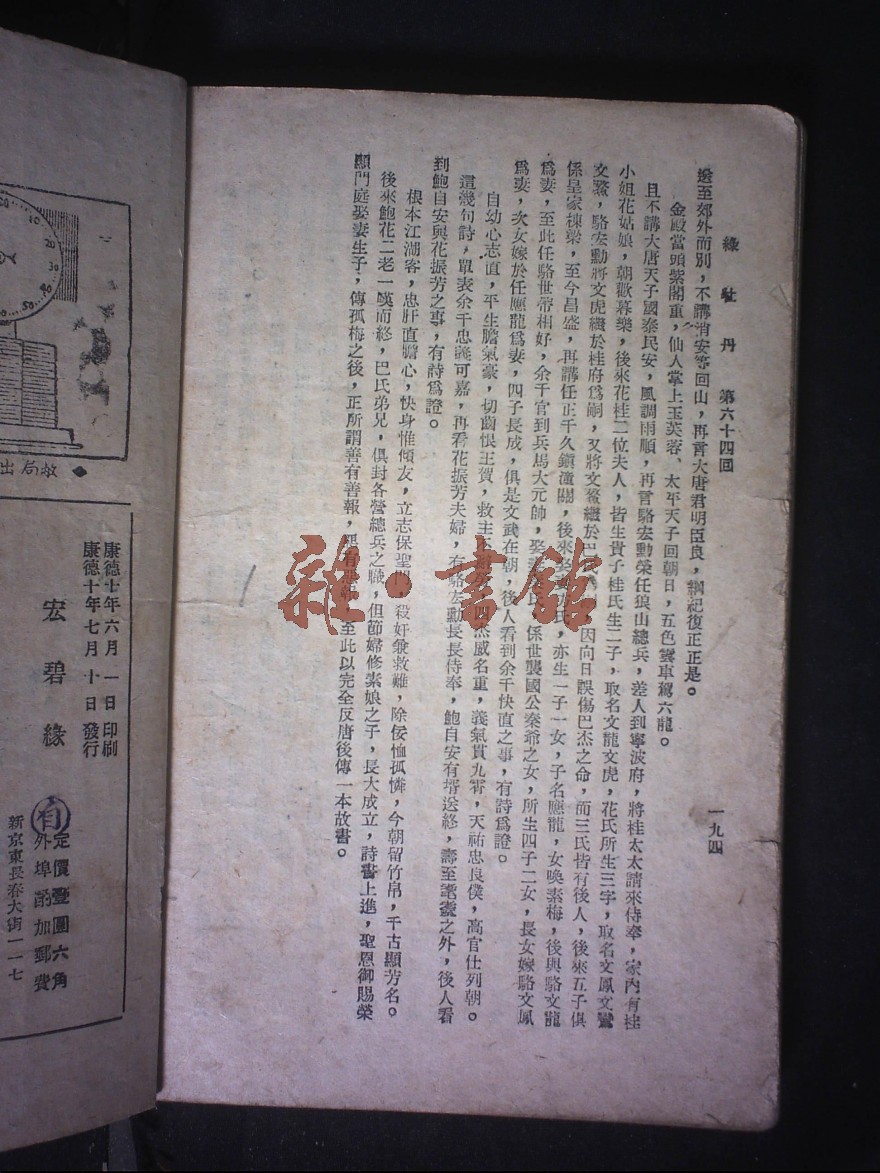 綠牡丹 第六十四回
一九四
撥至郊外而別，不講消安等回山，再言大唐君明臣良，綱紀復正正是。
金殿當頭紫閣重，仙人掌上玉芙蓉、太平天子回朝日，五色雲車駕六龍。
且不講大唐天子國泰民安，風調雨順，再言駱宏勳榮任狼山總兵，差人到寧波府，將桂太太請來侍奉，家內有桂
小姐花姑娘，朝歡暮樂，後來花桂二位夫人，皆生貴子桂氏生二子，取名文龍文虎，花氏所生三字，取名文鳳文鸞
文鰲，駱宏勳將文虎繼於桂府爲嗣，又將文鰲繼於巴氏 因向日誤傷巴杰之命，而三氏皆有後人，後來五子俱
係皇家棟梁，至今昌盛，再講任正千久鎮潼關，後來 亦生一子一女，子名應龍，女喚素梅，後與駱文龍
爲妻，至此任駱世帶相好，余千官到兵馬大元帥，娶 係世襲國公秦爺之女，所生四子二女，長女嫁駱文鳳
爲妻，次女嫁於任應龍爲妻，四子長成，俱是文武在朝，後人看到余千快直之事，有詩爲證。
自幼心志直，平生膽氣豪，切齒恨王賀，救主 四杰威名重，義氣貫九霄，天祐忠良僕，高官仕列朝。
這幾句詩，單表余千忠義可嘉，再看花振芳夫婦，有駱宏勳長長侍奉，鮑自安有壻送終，壽至耄耋之外，後人看
到鮑自安與花振芳之事，有詩爲證。
根本江湖客，忠肝直膽心，快身惟傾友，立志保聖門，殺奸兼救難，除佞恤孤憐，今朝留竹帛，千古顯芳名。
後來鮑花二老一嘆而終，巴氏弟兄，俱封各營總兵之職，但節婦修素娘之子，長大成立，詩書上進，聖恩御賜榮
顯門庭娶妻生子，傳孤梅之後，正所謂善有善報，惡有 至此以完全反唐後傳一本故書。
雜·書館
50
40
30
20
10
10
20
30
40
50
故局出
康德十年六月一日印刷
康德十年七月十日發行
宏碧緣
有
定價壹圓六角
外埠酌加郵費
新京東長春大街一一七